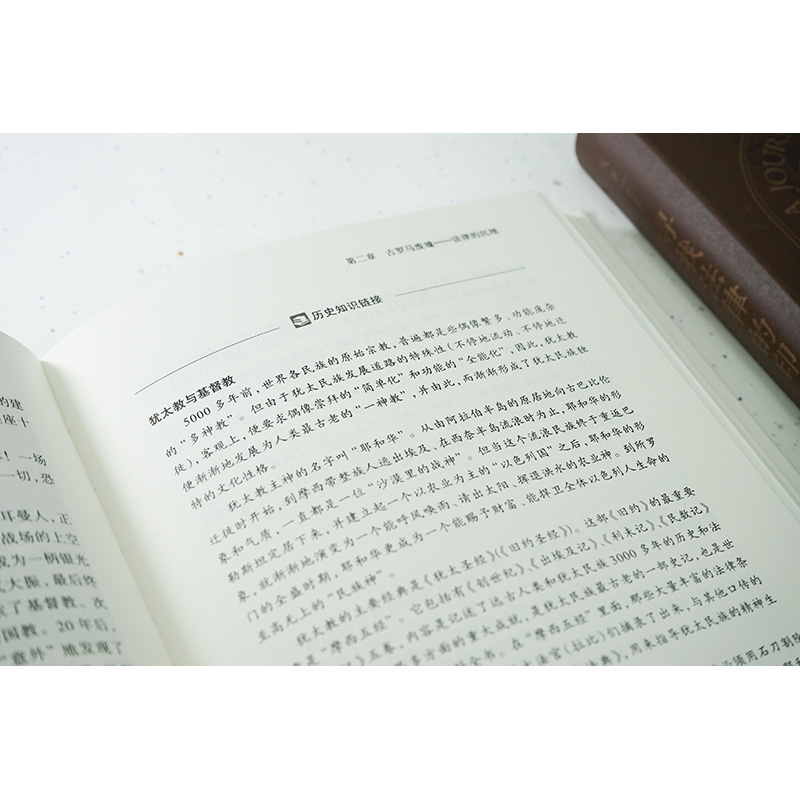 第二章 古罗马废墟——法律的沉埋
历史知识链接
犹太教与基督教
5000 多年前，世界各民族的原始宗教，普遍都是些偶像繁多、功能庞杂
的“多神教”。但由于犹太民族发展道路的特殊性（不停地流动、不停地迁
徙），客观上，便要求偶像崇拜的“简单化”和功能的“全能化”，因此，犹太教
便渐渐地发展为人类最古老的“一神教”，并由此，而渐渐形成了犹太民族独
特的文化性格。
犹太教主神的名字叫“耶和华”。从由阿拉伯半岛的原居地向古巴比伦
迁徙时开始，到摩西带整族人逃出埃及、在西奈半岛流浪时为止，耶和华的形
象和气质，一直都是一位“沙漠里的战神”。但当这个流浪民族终于重返巴
勒斯坦定居下来，并建立起一个以农业为主的“以色列国”之后，耶和华的形
象，就渐渐地演变为一个能呼风唤雨、请出太阳、撵退洪水的农业神。到所罗
门的全盛时期，耶和华更成为一个能赐予财富、能捍卫全体以色列人生命的
至高无上的“民族神”。
犹太教的主要经典是《犹太圣经》（《旧约圣经》）。这部《旧约》的最重要
是“摩西五经”。它包括有《创世纪》、《出埃及记》、《利未记》、《民数记》
五卷，内容是记述了远古人类和犹太民族3000 多年的历史和法
那多方面的重大成就，是犹太民族最古老的一部史记，也是世
全书。在“摩西五经”里面，那些大量丰富的法律条
大法官（拉比）们摘录了出来，与其他口传的
法典》，用来指导犹太民族的精神生
必须用石刀割
的建
座十
！一场
一切，恐
耳曼人，正
战场的上空
成为一柄银光
大振，最后终
了基督教。次
国教。20 年后
意外”地发现了
A JOUR